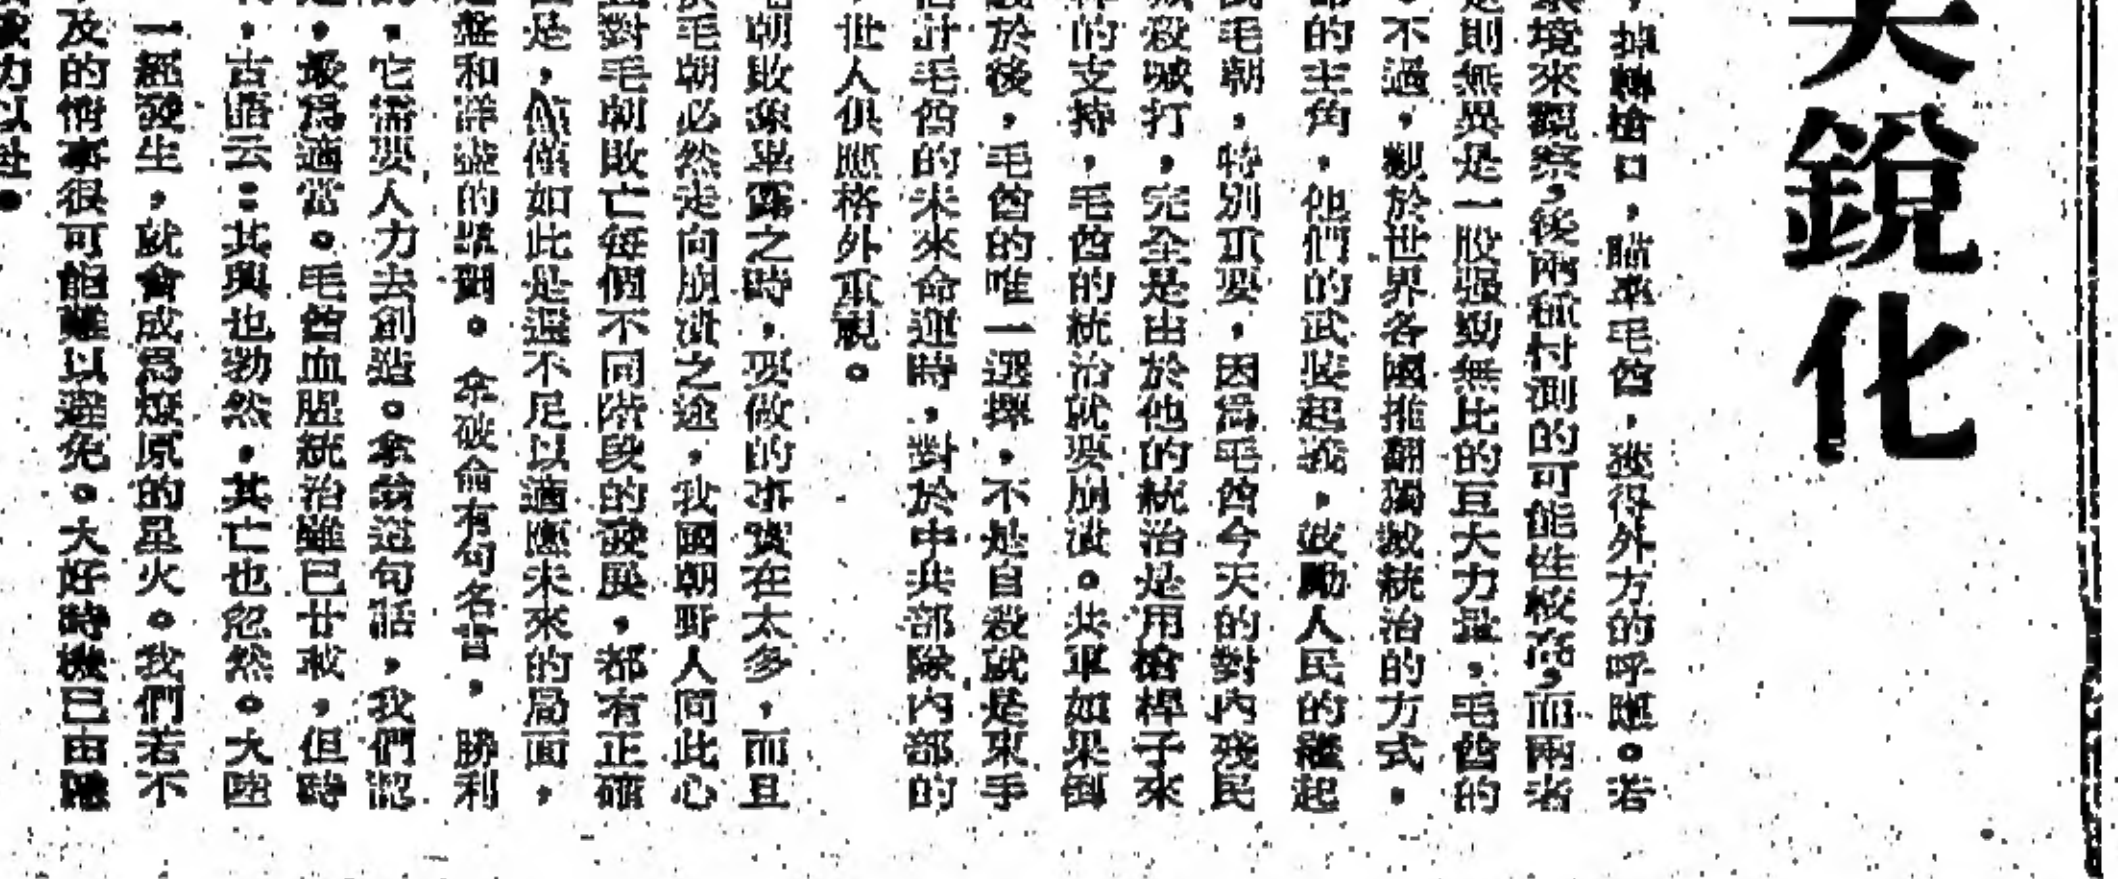 尖銳化
，掉轉槍口，瞄準毛酋，獲得外方的呼應。若
環境來觀察，後兩種忖測的可能性較高，而兩者
是則無異是一股強勁無比的巨大力量，毛酋的
。不過，觀於世界各國推翻獨裁統治的方式，
部的主角，他們的武裝起義，激勵人民的繼起
毛朝，特別重要，因為毛酋今天的對內殘民
喊殺喊打，完全是由於他的統治是用槍桿子來
的支持，毛酋的統治就要崩潰。共軍如果倒
於後，毛酋的唯一選擇，不是自殺就是束手
估計毛酋的未來命運時，對於中共部隊內部的
，世人俱應格外重視。
朝敗象畢露之時，要做的事實在太多，而且
毛朝必然走向崩潰之途，我國朝野人同此心
對毛朝敗亡每個不同階段的發展，都有正確
是，僅僅如此是還不足以適應未來的局面，
盤和洋盤的準則。拿破侖有句名言，勝利
，它需要人力去創造。拿翁這句話，我們認
，最為適當。毛酋血腥統治雖已廿載，但時
，古語云：其興也勃然，其亡也忽然。大陸
一經發生，就會成為燎原的星火。我們若不
及的情事很可能難以避免。大好時機已由隱
力以赴。